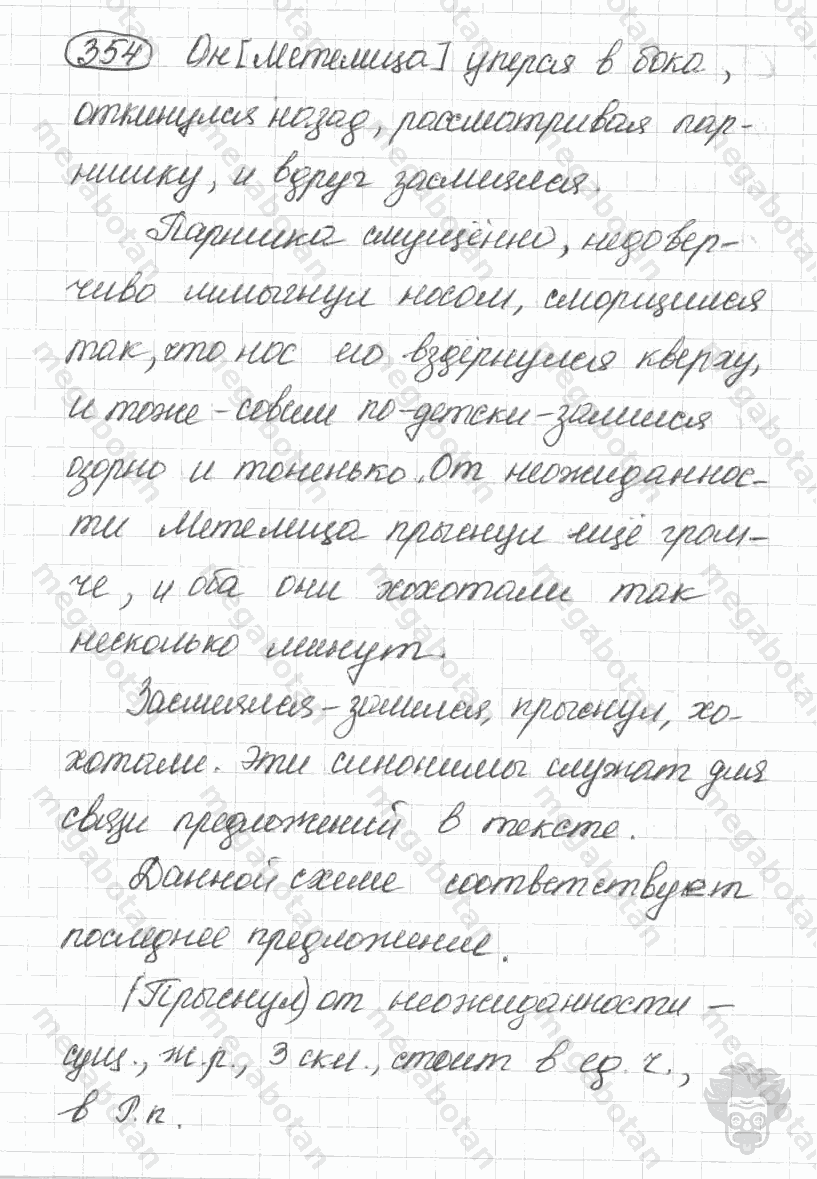 354 Он [Метелица] уперся в бока,
откинулся назад, рассматривая пар-
нишку, и вдруг засмиялся.
Парнишка смущённо, недовер-
чиво шмыгнул носом, сморщился
так, что нос его вздёрнулся кверху,
и тоже - совсем по-детски - залился
озорно и тоненько. От неожиданнос-
ти Метелица прыснул ещё гром-
че, и оба они хохотали так
несколько минут.
Засмиялся - залился, прыснул, хо-
хотали. Эти синонимы служат для
связи предложений в тексте.
Данной схеме соответствует
последнее предложение.
(Прыснул) от неожиданности -
сущ., ж.р., 3 скл., стоит в ед. ч.,
в Р.п.
megabotan